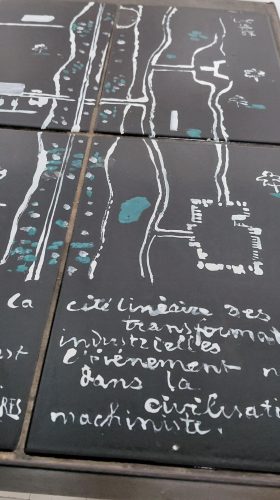 la
cité linéaire des
transformat
industrielles
est
l'événement n
dans la
RES
civilisati
machiniste.